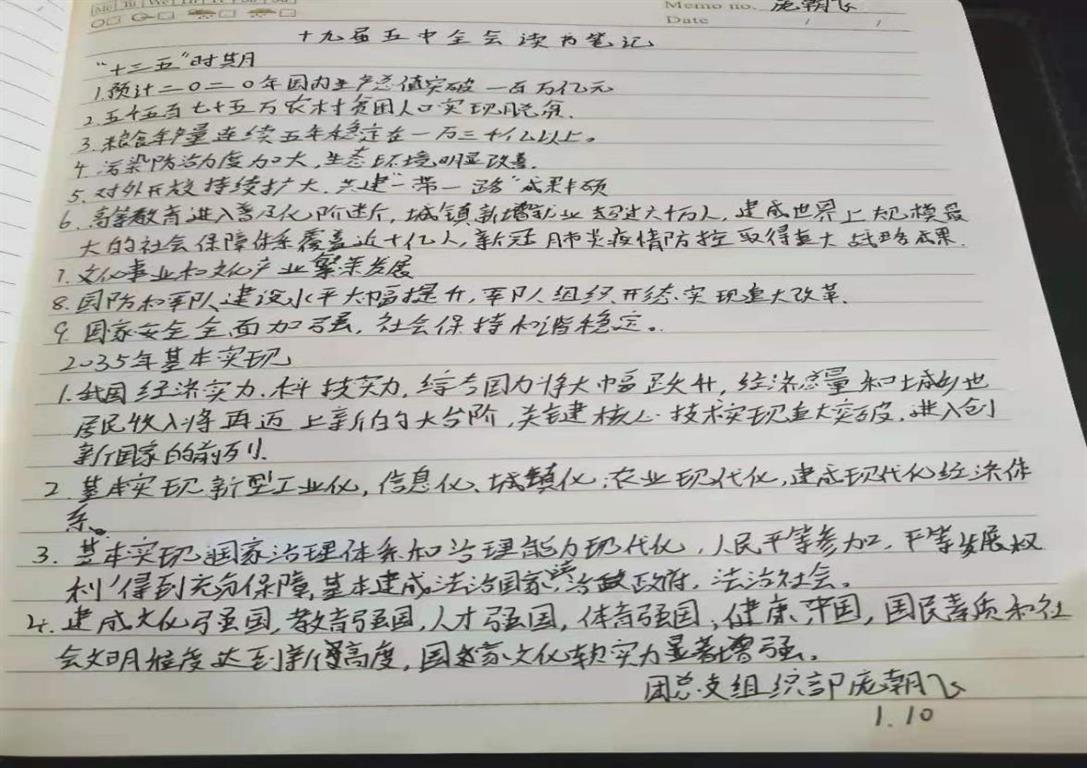 Mo Tu We Th Fr Sa Su
Memo no. 庞朝飞
Date / /
十九届五中全会读书笔记
“十三五”时期
1.预计二〇二〇年国内生产总值突破一百万亿元
2.五千五百七十五万农村贫困人口实现脱贫.
3.粮食年产量连续五年稳定在一万三千亿以上。
4.污染防治力度加大,生态环境明显改善.
5.对外开放持续扩大.共建“一带一路”成果丰硕
6.高等教育进入普及化阶段,城镇新增就业超过六千万人,建成世界上规模最
大的社会保障体系覆盖近十亿人,新冠肺炎疫情防控取得重大战略成果.
7.文化事业和文化产业繁荣发展
8.国防和军队建设水平大幅提升,军队组织形态实现重大改革.
9.国家安全全面加强,社会保持和谐稳定。
2035年基本实现
1.我国经济实力.科技实力,综合国力将大幅跃升,经济总量和城乡
居民收入将再迈上新的大台阶,关键核心技术实现重大突破.进入创
新国家的前列.
2.基本实现新型工业化,信息化、城镇化,农业现代化,建成现代化经济体
系。
3.基本实现国家治理体系和治理能力现代化,人民平等参加,平等发展权
利得到充分保障,基本建成法治国家,法治政府,法治社会。
4.建成文化强国,教育强国,人才强国,体育强国,健康中国,国民素质和社
会文明程度达到新高度,国家文化软实力显著增强。
团总支组织部庞朝飞
1.10